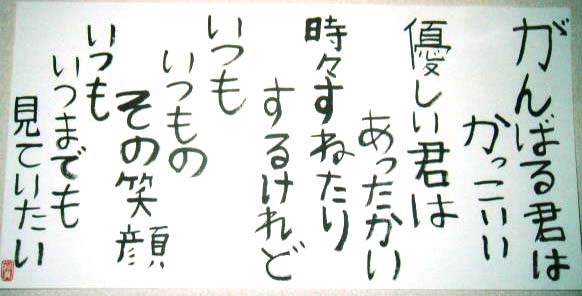 がんばる君は
かっこいい
優しい君は
あったかい
時々すねたり
するけれど
いつも
いつもの
その笑顔
いつも
いつまでも
見ていたい